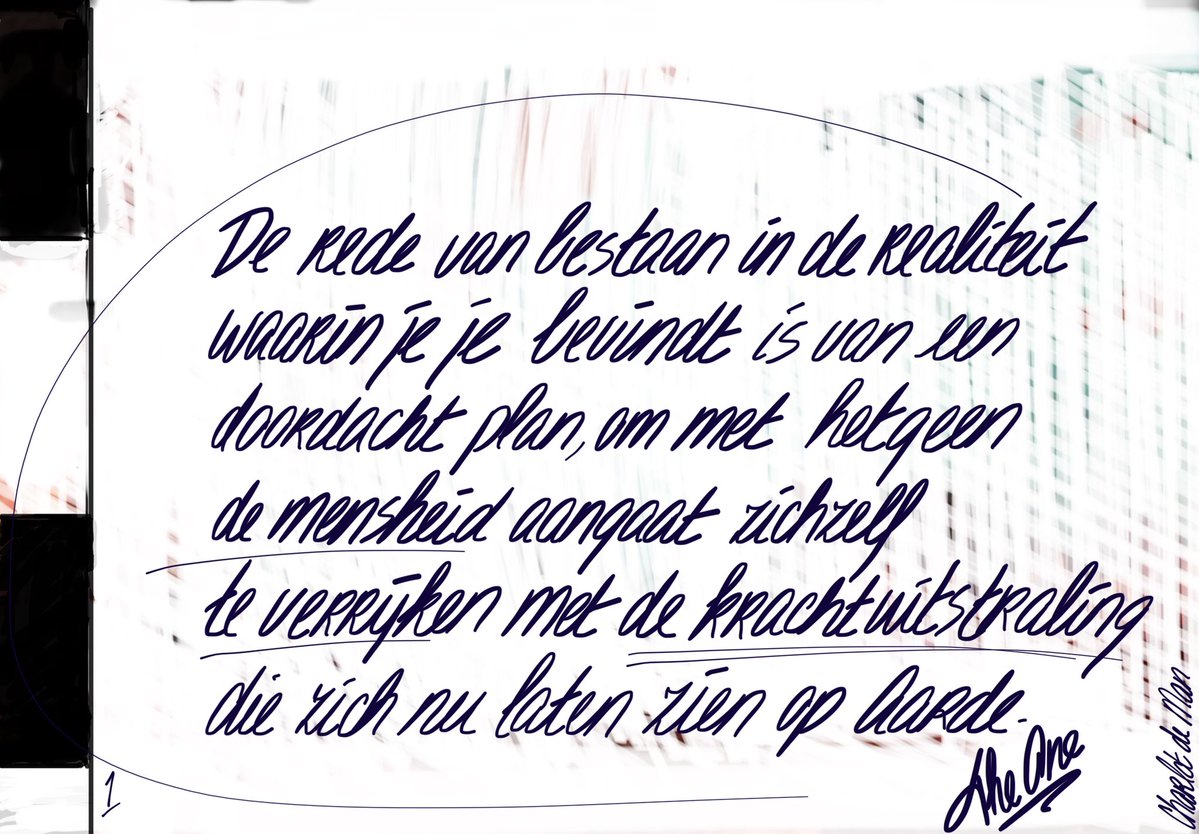 De rede van bestaan in de realiteit
waarin je je bevindt is van een
doordacht plan, om met hetgeen
de mensheid aangaat zichzelf
te verrijken met de krachtuitstraling
die zich nu laten zien op Aarde.
The One
1
Charlot de Man